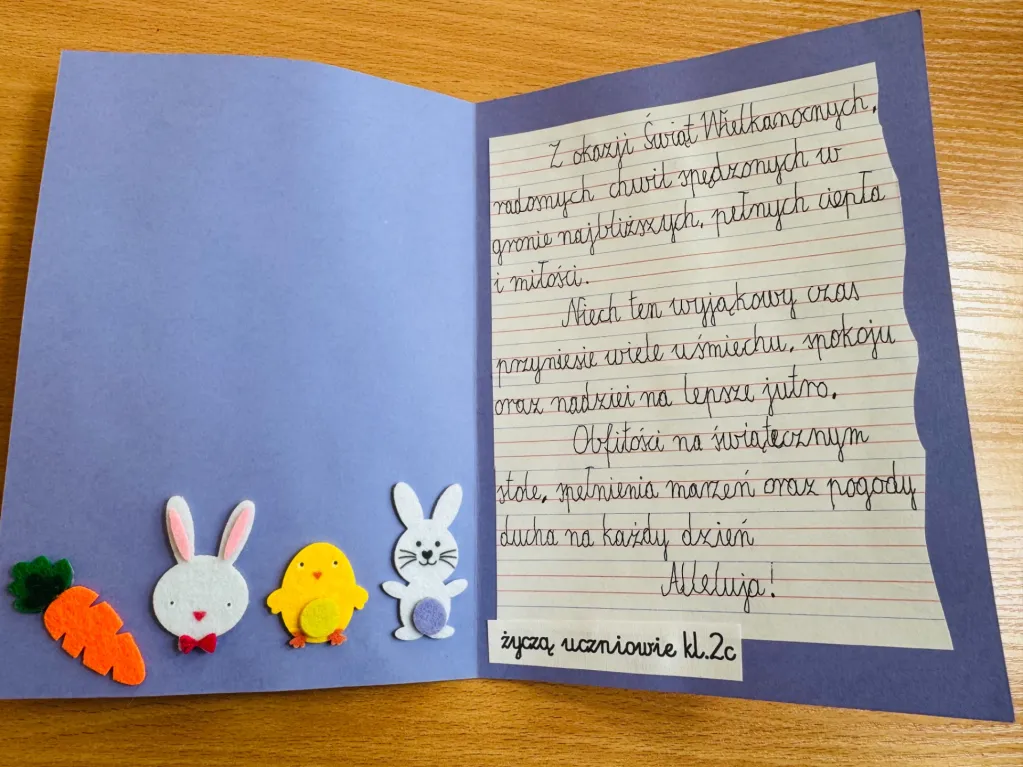 Z okazji Świąt Wielkanocnych,
radosnych chwil spędzonych w
gronie najbliższych, pełnych ciepła
i miłości.
Niech ten wyjąkowy czas
przyniesie wiele uśmiechu, spokoju
oraz nadziei na lepsze jutro.
Obfitości na świątecznym
stole, spełnienia marzeń oraz pogody
ducha na każdy dzień
Alleluja!
życzą uczniowie kl.2c